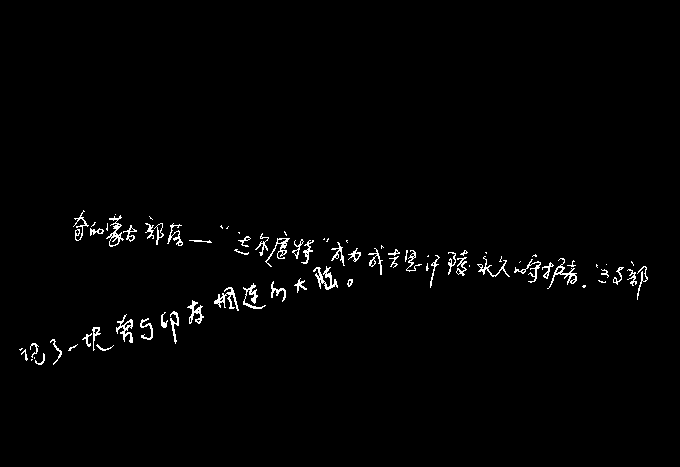 奇的蒙古部落—“达尔扈特”成为成吉思汗陵永久的守护者。这与部
现了一块曾与印存相连的大陆。